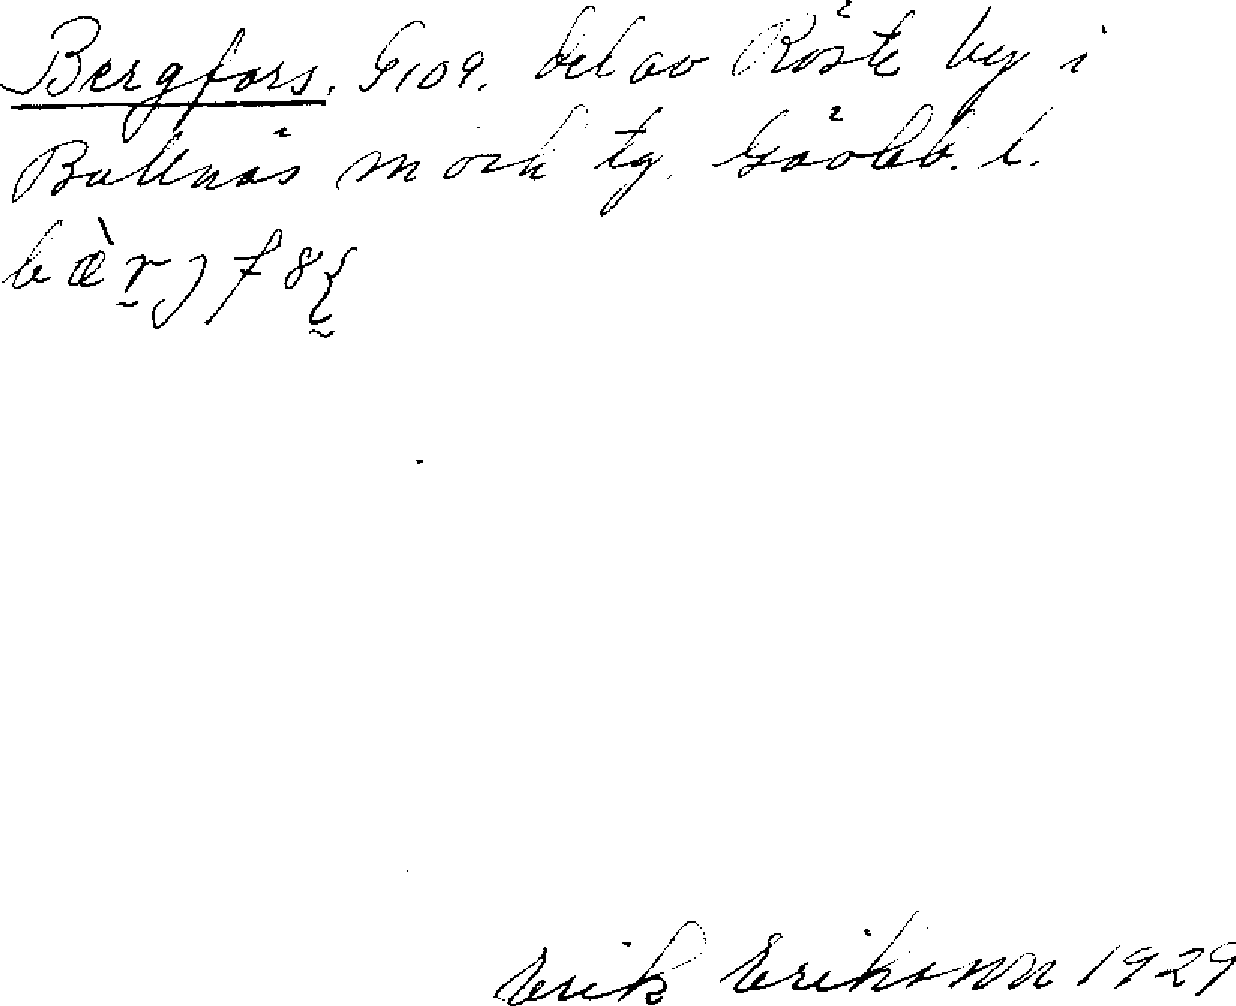 Bergfors. G109. del av Röste by i
Bollnäs sn och tg. Gävleb. l.
bær̰j f
Erik Erikson 1929